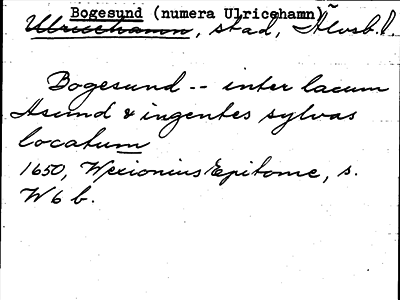 Bogesund (numera Ulricehamn)
Ulricehamn, stad, Älvsb. l.
Bogesund -- inter lacum
Asund & ingentes sylvas
locatum
1650, Wexionius Epitome, s.
W6 b.